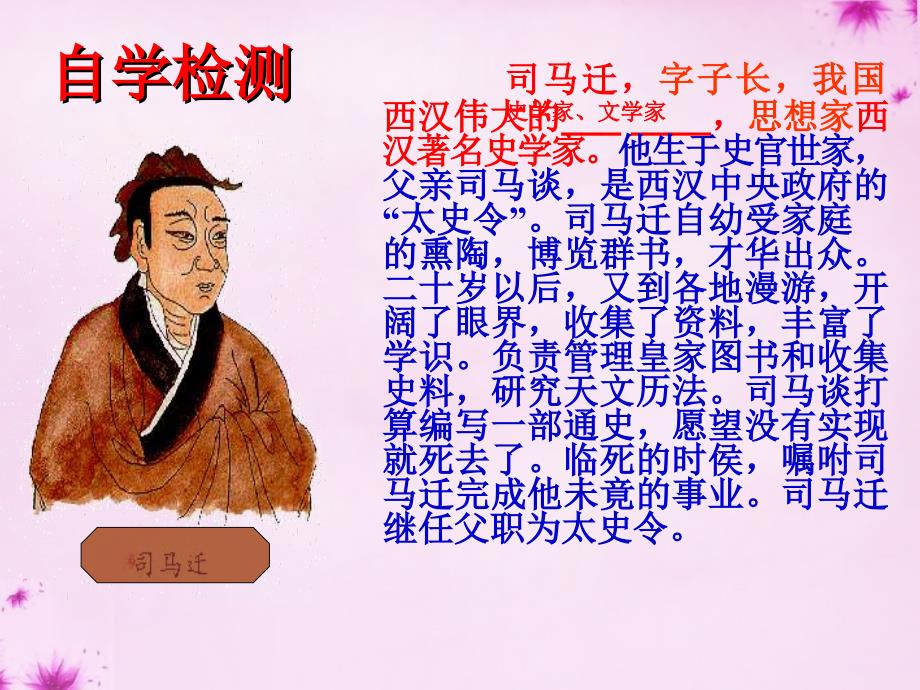 自学检测
司马迁，字子长，我国
西汉伟大的史学家、文学家，思想家西
汉著名史学家。他生于史官世家，
父亲司马谈，是西汉中央政府的
“太史令”。司马迁自幼受家庭
的熏陶，博览群书，才华出众。
二十岁以后，又到各地漫游，开
阔了眼界，收集了资料，丰富了
学识。负责管理皇家图书和收集
史料，研究天文历法。司马谈打
算编写一部通史，愿望没有实现
就死去了。临死的时侯，嘱咐司
马迁完成他未竟的事业。司马迁
继任父职为太史令。
司马迁